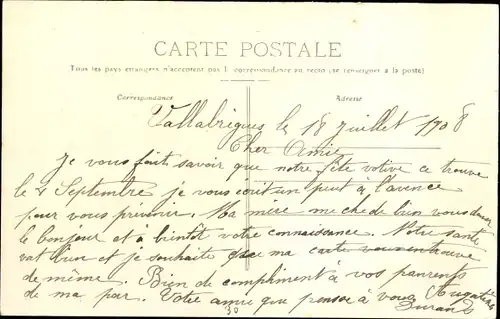 CARTE POSTALE
Tous les pays étrangers n'acceptent pas la correspondance au recto (se renseigner à la poste)
Correspondance Adresse
Vallabrègues le 18 Juillet 1908
Cher Amie
Je vous fait savoir que notre fête votive ce trouve
le Septembre je vous écrit un peut à l'avence
pour vous prévenir. Ma mère me de bien vous
le bonjour et à bientôt votre connaissance. Notre santé
vat bien et je souhaite que ma carte vous trouve
de même. Bien de compliment à vos parrents
de ma par. Votre amie que pense à vous
Durand
30